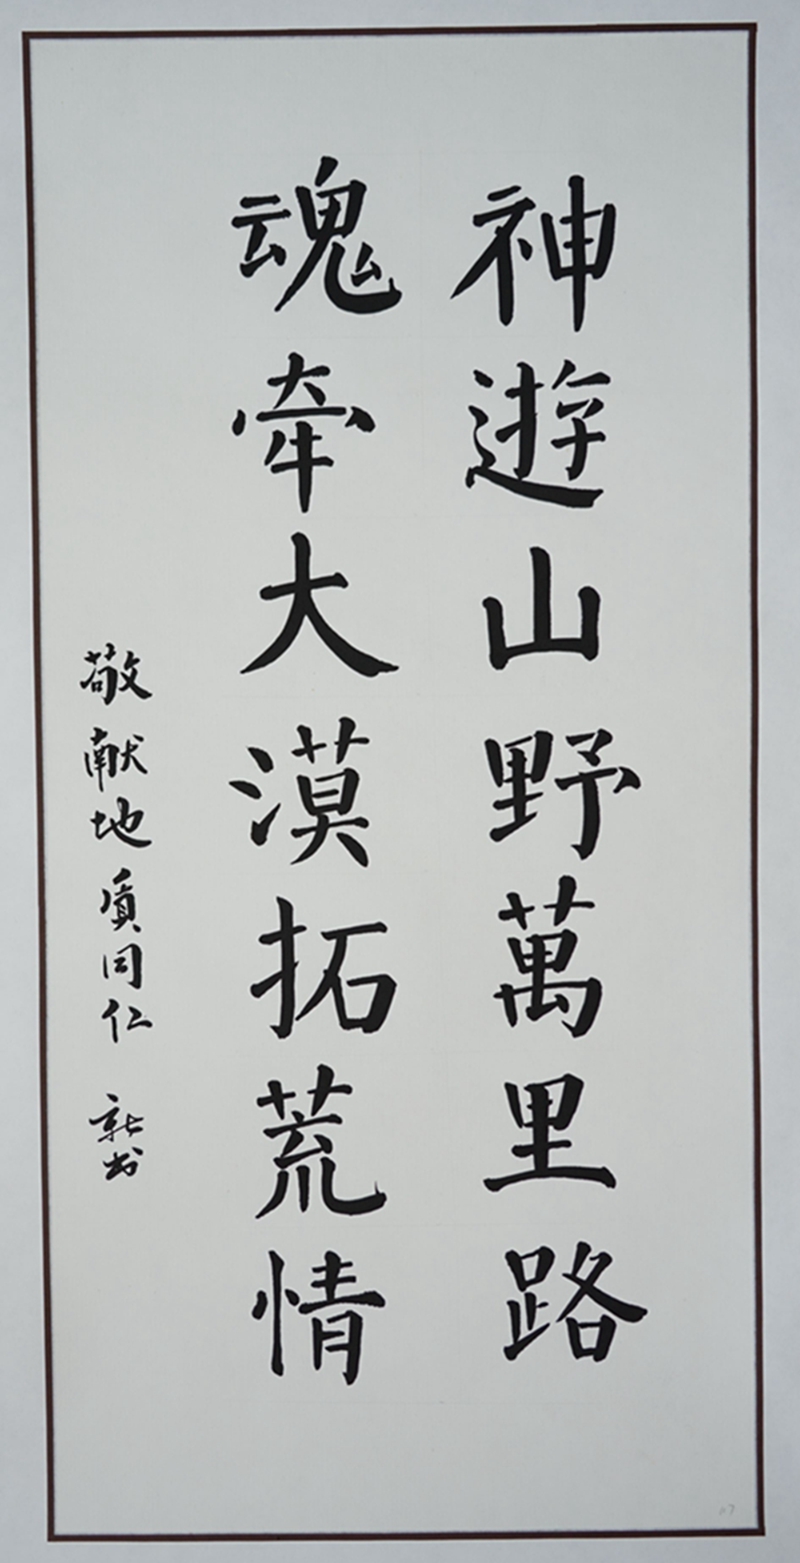 神遊山野萬里路
魂牵大漠拓荒情
敬献地质同仁 新书